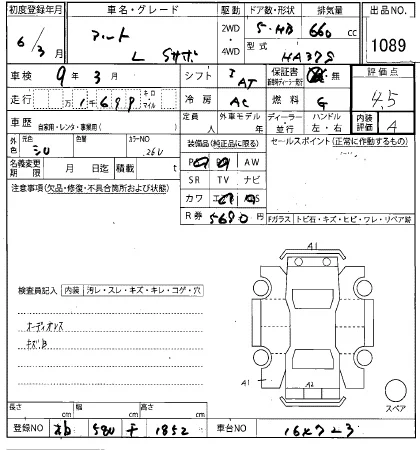 初度登録年月 車名・グレード 駆動 ドア数・形状 排気量 出品NO.
6/3月 アルト L 2WD ・ 4WD 5・HB 660cc 1089
型式 HA37S
車検 9年3月 シフト AT 保証書 無 評価点
走行 万1千699 キロ マイル 冷房 AC 燃料 G 4.5
車歴 自家用・レンタ・事業用( ) 定員 人 外車モデル 年 ディーラー・並行 ハンドル 左・右 内装評価 A
外色 元色 シロ 色替 カラーNO 26U 装備品(純正品に限る) セールスポイント(正常に作動するもの)
名義変更期限 月 日迄 積載 t AW
注意事項(欠品・修復・不具合箇所および状態) SR TV ナビ
カワ
R券 5680 Fガラス トビ石・キズ・ヒビ・ワレ・リペア跡
A1
検査員記入 内装 汚レ・スレ・キズ・キレ・コゲ・穴
オーディオレス
キズ
A1 A2
スペア
長さ cm 幅 cm 高さ cm
登録NO 580 1852 車台NO